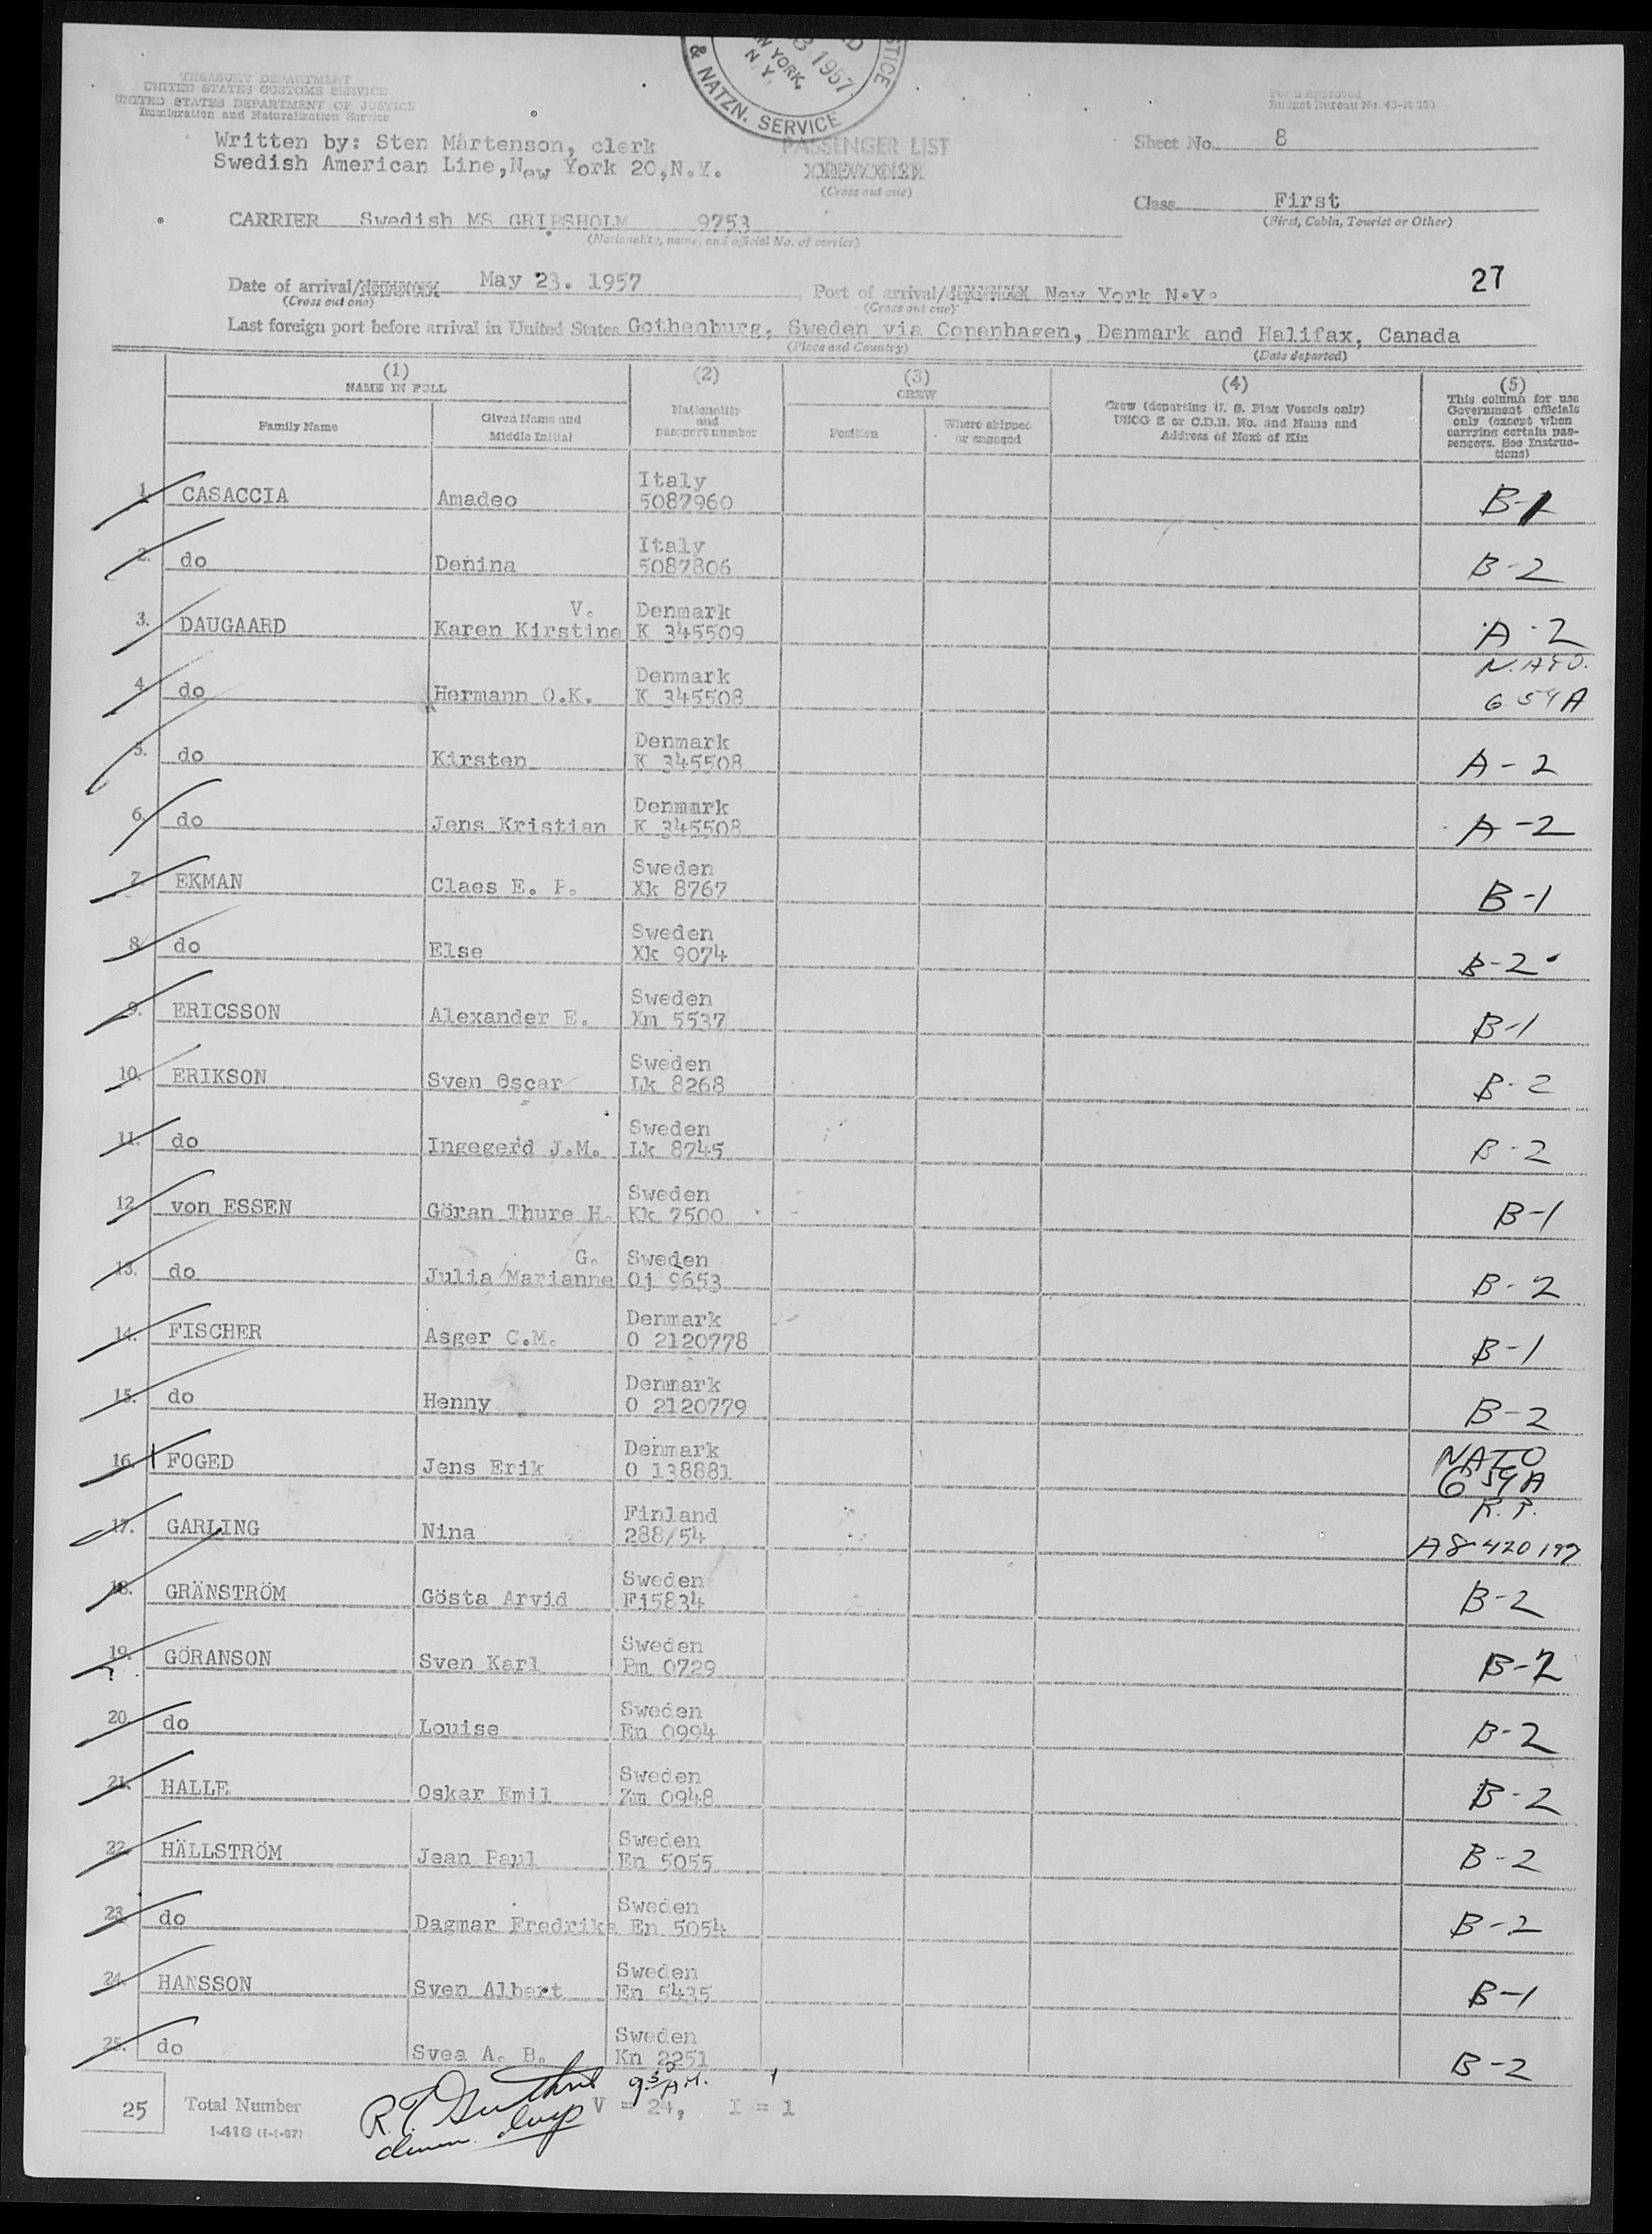 TREASURY DEPARTMENT
UNITED STATES CUSTOMS SERVICE
UNITED STATES DEPARTMENT OF JUSTICE
Immigration and Naturalization Service
& NATZN. SERVICE
NEW YORK, N.Y.
1957
Form Approved
Budget Bureau No. 43-R 353
Written by: Sten Mårtenson, clerk
Swedish American Line, New York 20, N.Y.
PASSENGER LIST
(Cross out one)
Sheet No. 8
Class First
(First, Cabin, Tourist or Other)
CARRIER Swedish MS GRIPSHOLM 9753
(Nationality, name, and official No. of carrier)
27
Date of arrival/ May 23. 1957 Port of arrival/departure New York N.Y.
(Cross out one) (Cross out one)
Last foreign port before arrival in United States Gothenburg, Sweden via Copenhagen, Denmark and Halifax, Canada
(Place and Country) (Date departed)
(1) NAME IN FULL
Family Name
Given Name and Middle Initial
(2) Nationality and passport number
(3) CREW
Position
Where shipped or engaged
(4) Crew (departing U. S. Flag Vessels only) USCG Z or C.D.B. No. and Name and Address of Next of Kin
(5) This column for use Government officials only (except when carrying certain passengers. See Instructions)
1. CASACCIA Amadeo Italy 5087960 B-1
2. do Denina Italy 5087806 B-2
3. DAUGAARD Karen Kirstine V. Denmark K 345509 A-2
4. do Hermann O.K. Denmark K 345508 N.ATO. 654A
5. do Kirsten Denmark K 345508 A-2
6. do Jens Kristian Denmark K 345508 A-2
7. EKMAN Claes E. P. Sweden Xk 8767 B-1
8. do Else Sweden Xk 9074 B-2
9. ERICSSON Alexander E. Sweden Xm 5537 B-1
10. ERIKSON Sven Oscar Sweden Lk 8268 B-2
11. do Ingegerd J.M. Sweden Lk 8745 B-2
12. von ESSEN Göran Thure H. Sweden Kk 7500 B-1
13. do Julia Marianne G. Sweden Oj 9653 B-2
14. FISCHER Asger C.M. Denmark O 2120778 B-1
15. do Henny Denmark O 2120779 B-2
16. FOGED Jens Erik Denmark O 138881 NATO 654A
17. GARLING Nina Finland 288/54 R.P. A8 420 197
18. GRÄNSTRÖM Gösta Arvid Sweden Fj5834 B-2
19. GÖRANSON Sven Karl Sweden Pm 0729 B-2
20. do Louise Sweden En 0994 B-2
21. HALLE Oskar Emil Sweden Zm 0948 B-2
22. HÄLLSTRÖM Jean Paul Sweden En 5055 B-2
23. do Dagmar Fredrika Sweden En 5054 B-2
24. HANSSON Sven Albert Sweden En 5435 B-1
25. do Svea A. B. Sweden Kn 2251 B-2
25 Total Number
I-418 (1-1-57)
9 30 A.M.
V = 24, I = 1